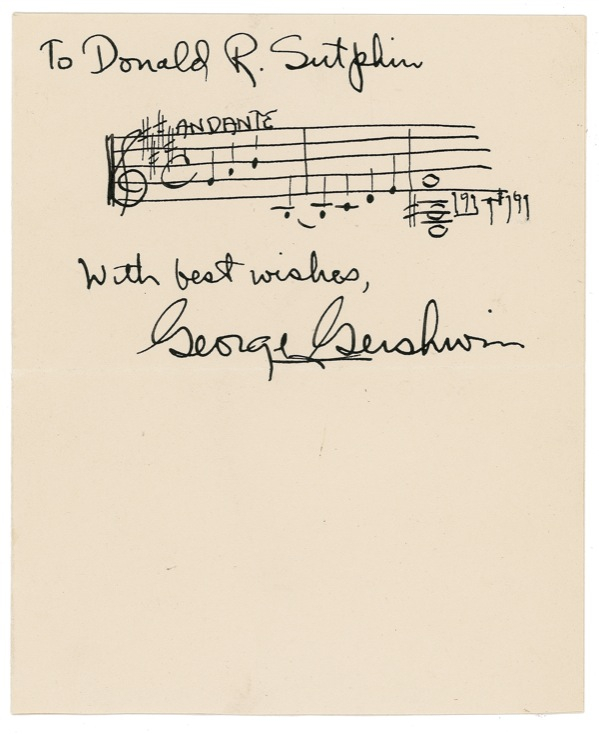 To Donald R. Sutphin
ANDANTE
With best wishes,
George Gershwin